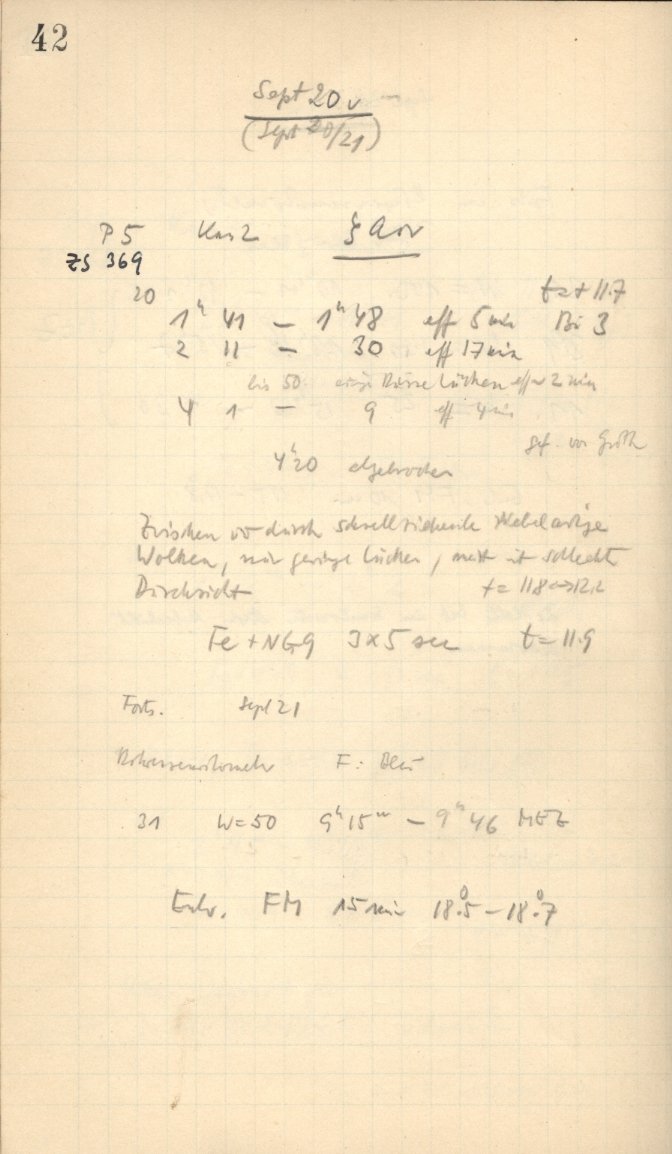 42
Sept 20 v
(Sept 20/21)
P 5 Kas 2 ζ Aur
ZS 369
20 t=+11.7
1h 41 — 1h 48 eff 5 min Bi 3
2 11 — 30 eff 17 min
bis 50 Lücken eff 2 min
4 1 — 9 eff 4 min
gef. von
4h20 abgebrochen
Zwischen durch schnellziehende Nebelartige
Wolken, nur geringe Lücken, meist mit schlechter
Durchsicht t= 11.8↔12.2
Fe + NG9 3×5 sec t=11.9
Forts. Sept 21
F: Blau
31 W=50 9h15m — 9h46 MEZ
Entw. FM 15 min 18°.5 — 18°.7